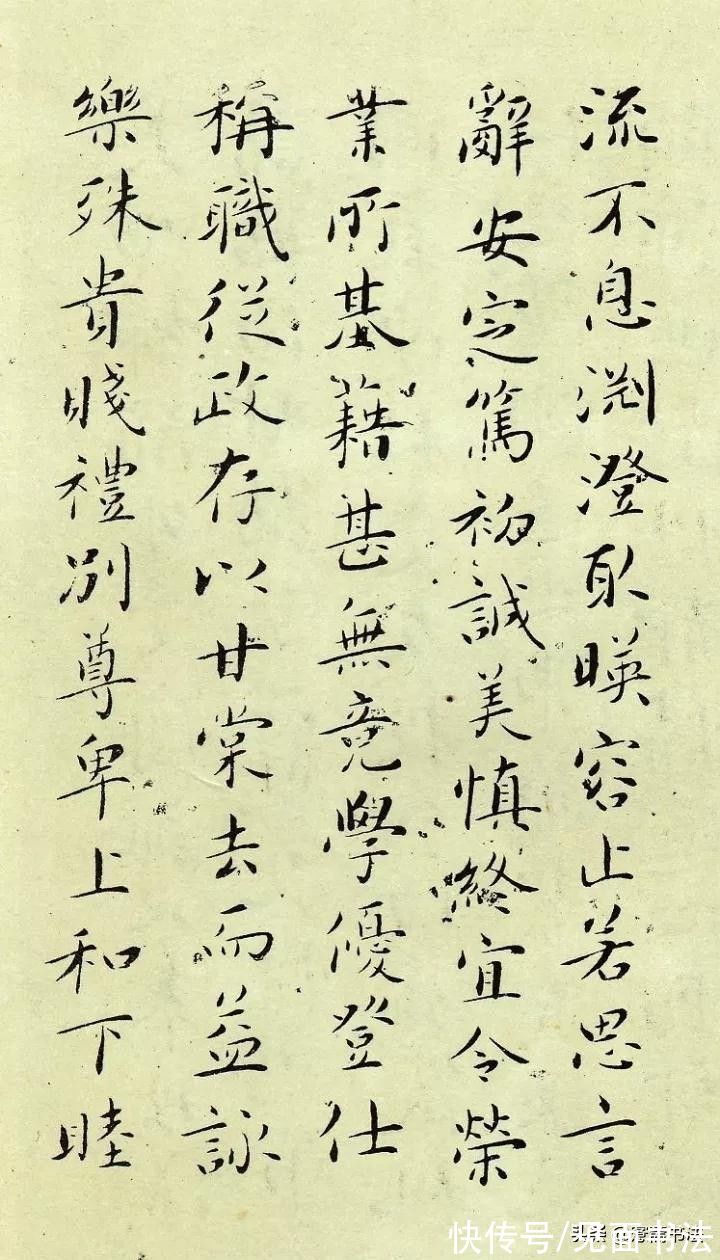 流不息渊澄取暎容止若思言
辭安定篤初誠美慎終宜令榮
業所基籍甚無竟學優登仕
稱職從政存以甘棠去而益詠
樂殊貴賤禮別尊卑上和下睦
快传号/见面书法
头条